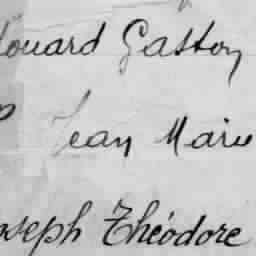 douard Gaston
Jean Marie
oseph Théodore